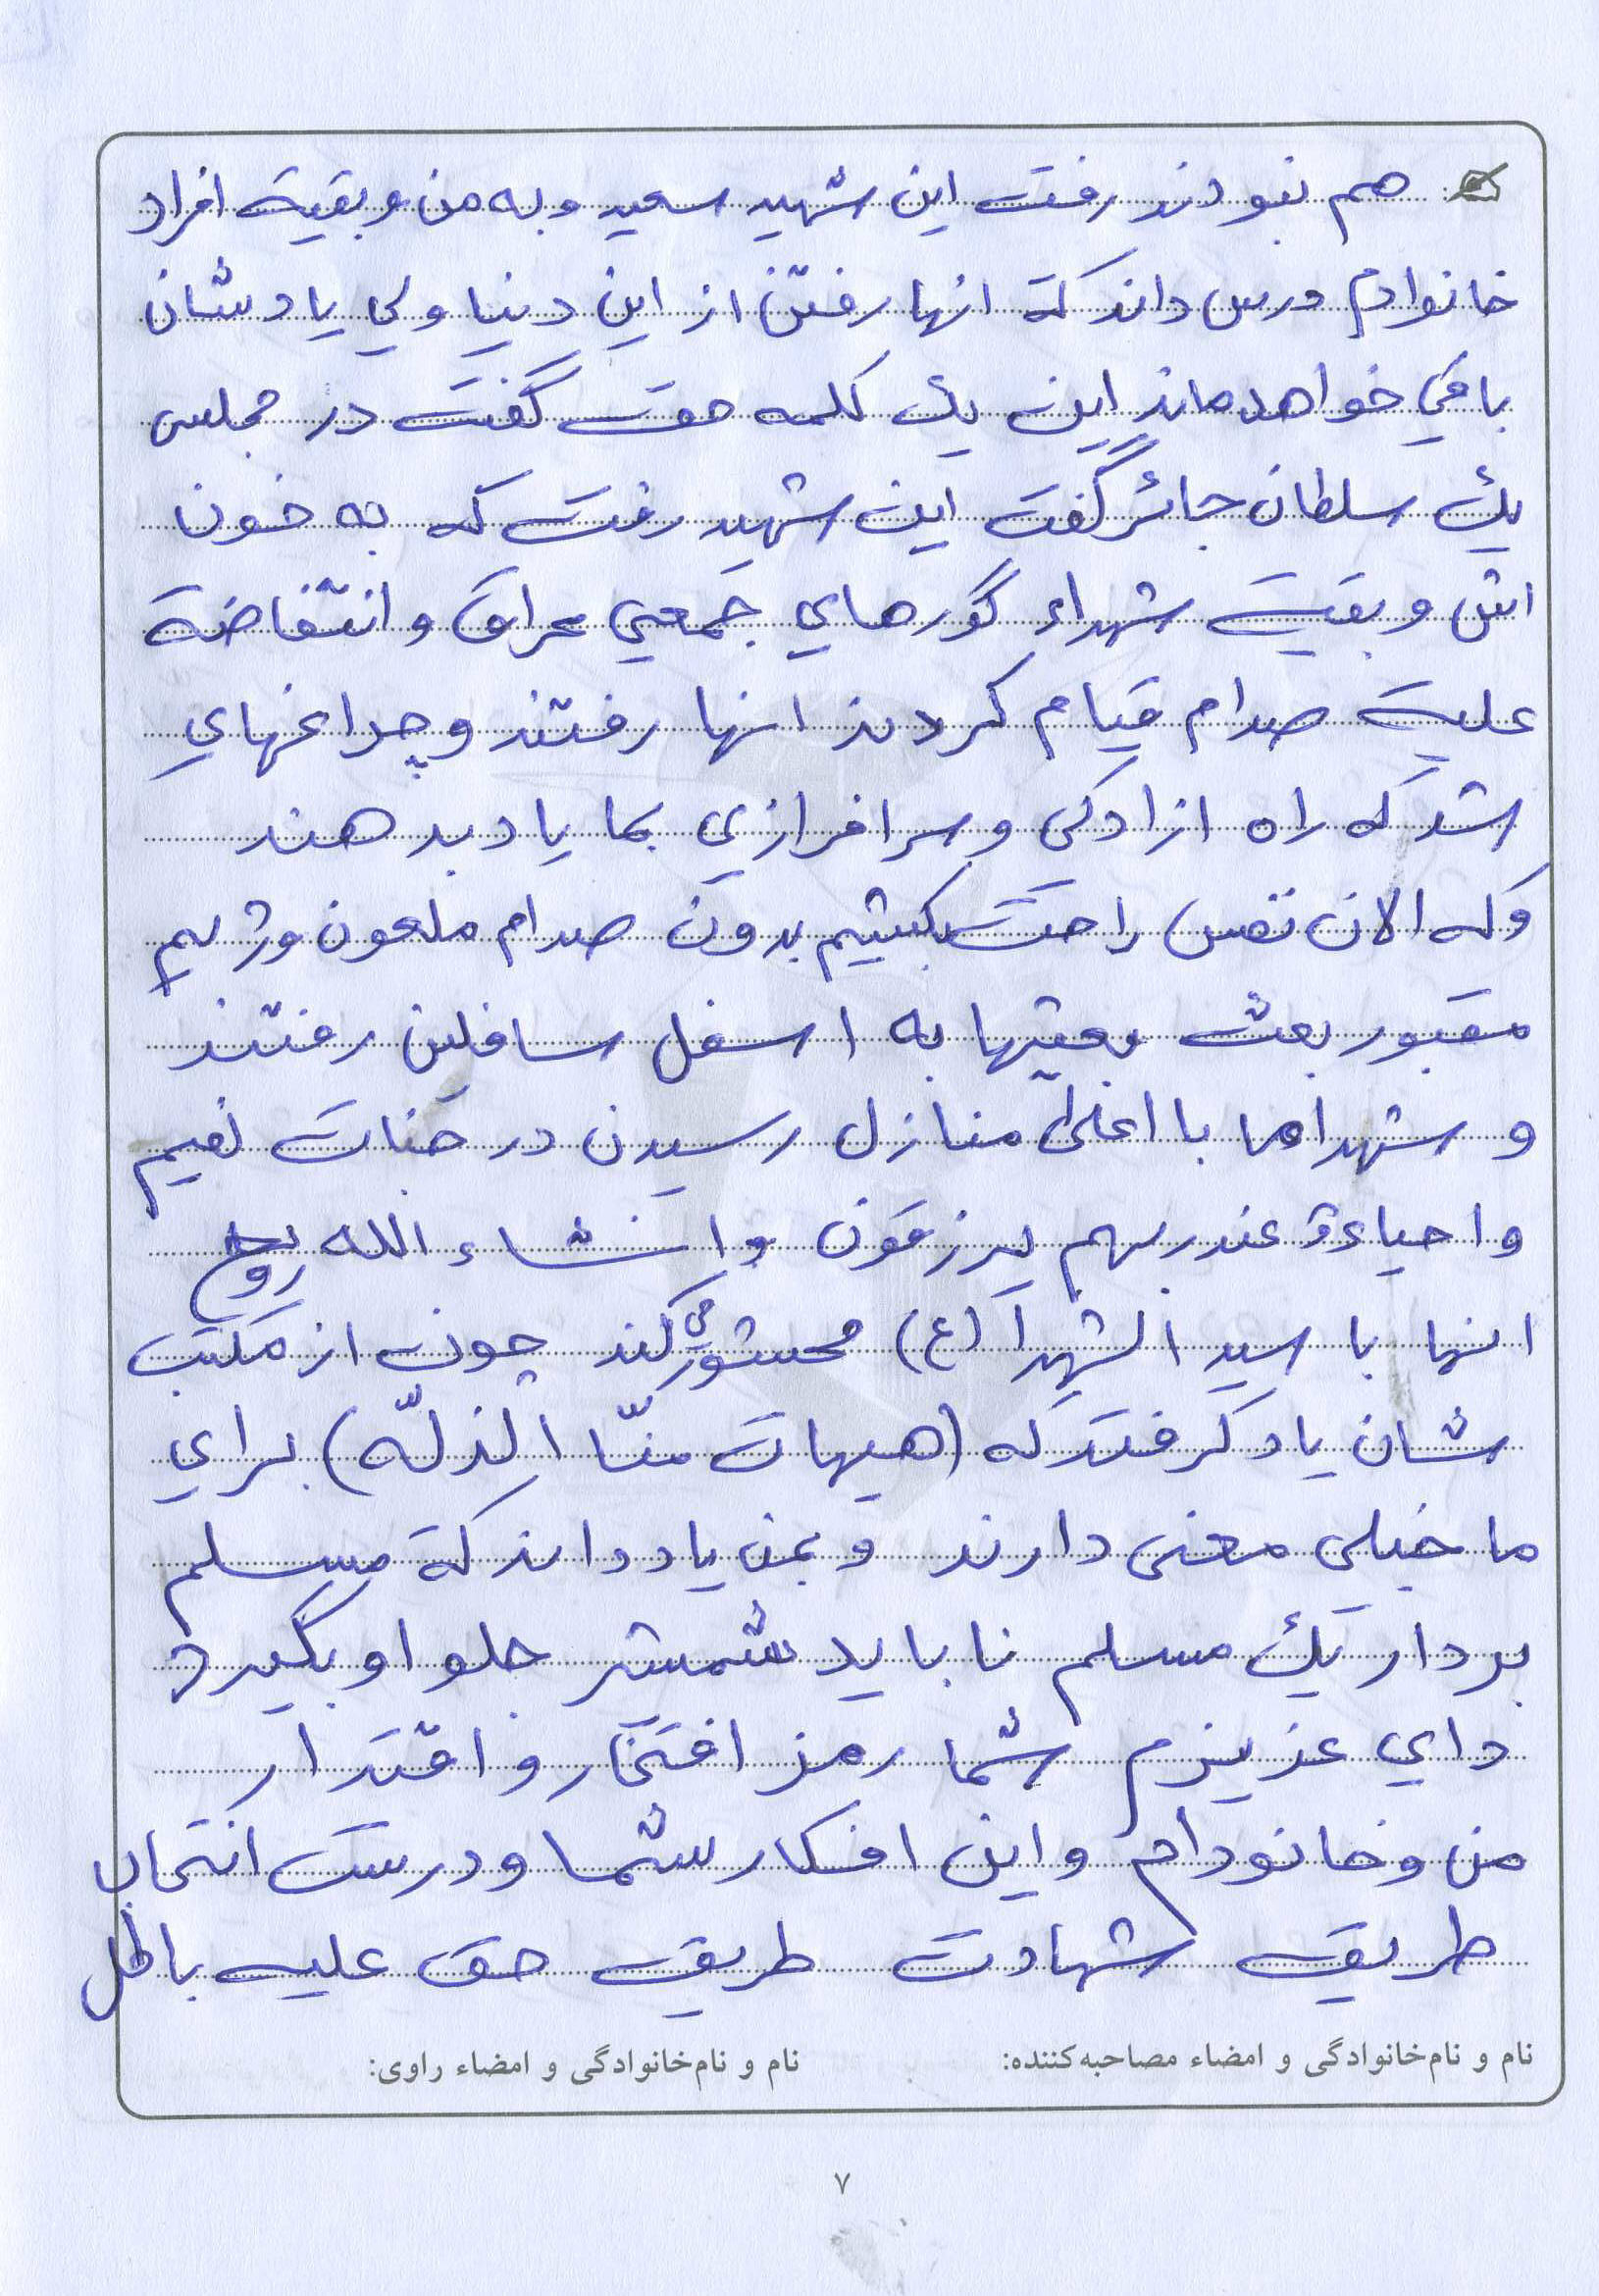 هم نبودند رفت این شهید سعید و به من و بقیة افراد
خانوادم درس داند كة انها رفتن از این دنیا ولي یادشان
باقي خواهد ماند این یك كلمه حق گفت در مجلس
یك سلطان جائر گفت این شهید رفت كه به خون
اش و بقیة شهداء گورهاي جمعي عراق و انتفاضة
علیة صدام قیام كردند انها رفتند و چراغهاي
شد كه راه ازادگي و سرافرازي بما یاد بدهند
و كه الان نفس راحت بكشیم بدون صدام ملعون و رژیم
مقبور بعث بعثیها به اسفل سافلین رفتند
و شهداما با اعلى منازل رسیدن در جنات نعیم
و احیاءة عند ربهم یرزقون و انشاء الله روح
انها با سید الشهدا (ع) محشور می كند چون از مكتب
شان یاد گرفتد كه (هیهات منّا الذلّه) براي
ما خیلی معنی دارند و بمن یاد داند كة مسلم
بردار یك مسلم نا باید شمشیر جلو او بگیرد
داي عزیزم شما رمز افتخار و اقتدار
من و خانودام و این افكار شما و درست انتخاب
طریق شهادت طریق حق علیه باطل
نام و نام‌خانوادگی و امضاء مصاحبه‌کننده: نام و نام‌خانوادگی و امضاء راوی:
۷